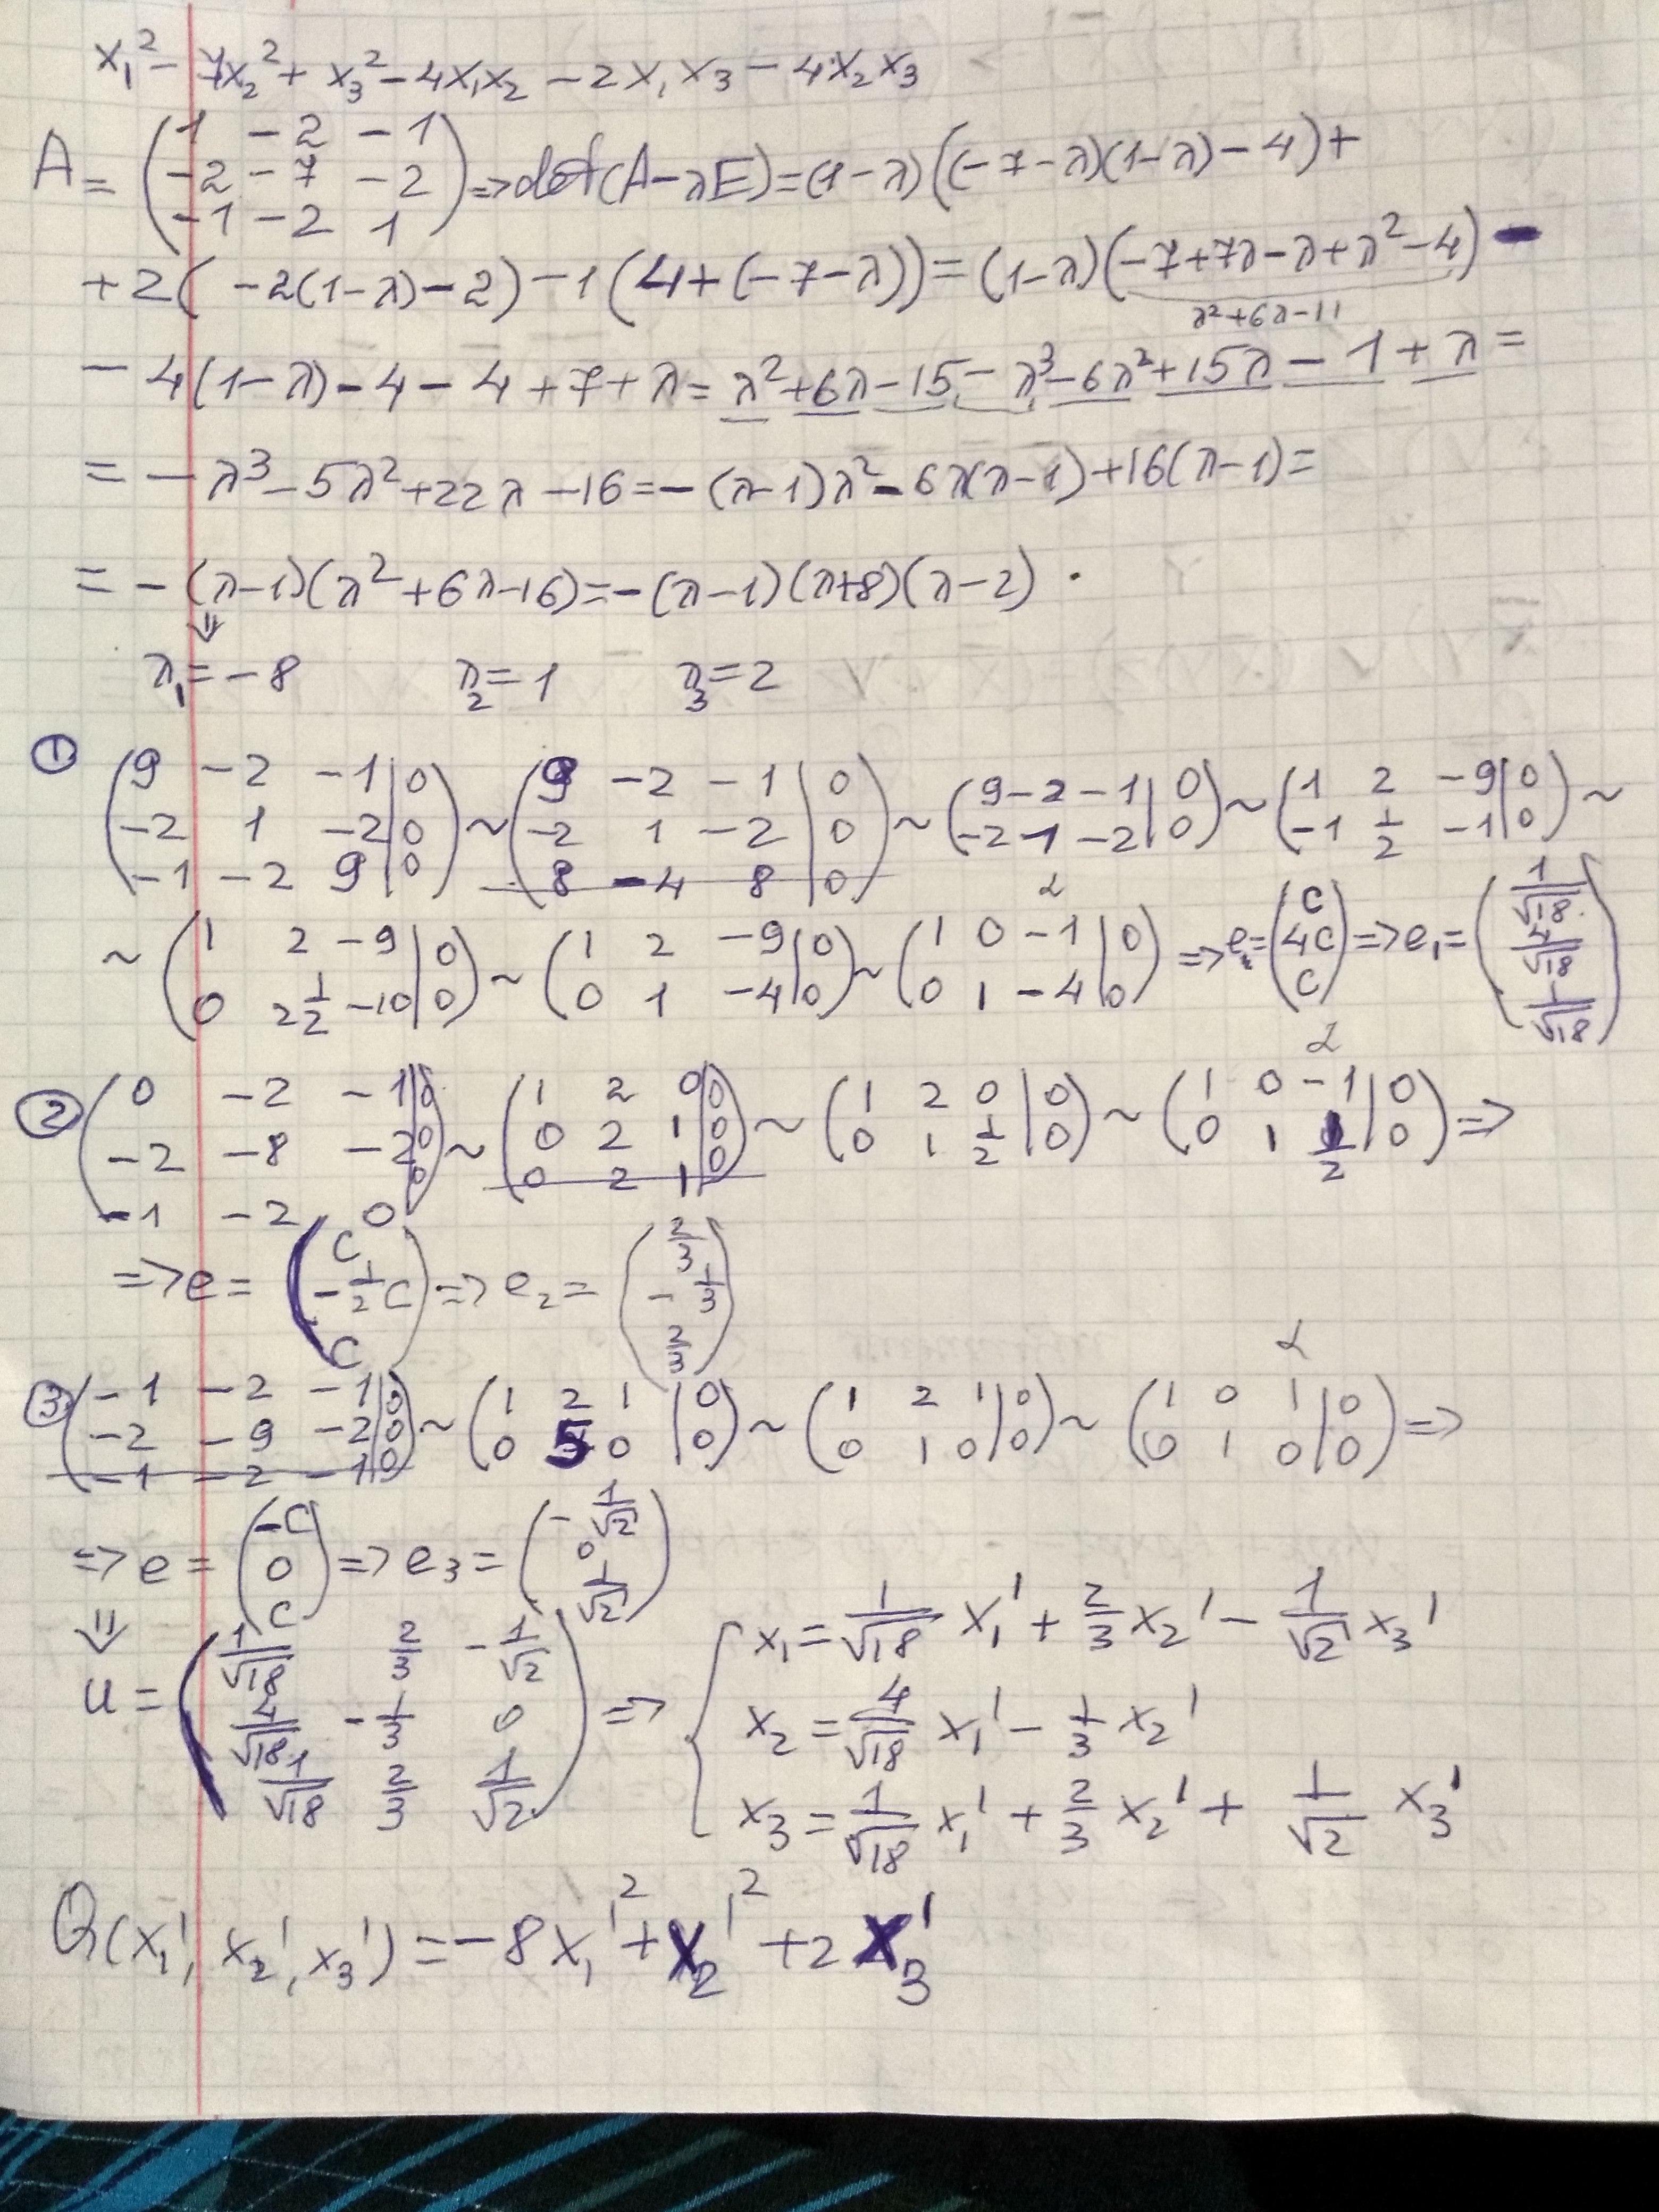 x₁² - 7x₂² + x₃² - 4x₁x₂ - 2x₁x₃ - 4x₂x₃
A = (1 -2 -1; -2 -7 -2; -1 -2 1) => det(A-λE) = (1-λ)((-7-λ)(1-λ)-4)+
+2(-2(1-λ)-2)-1(4+(-7-λ)) = (1-λ)(-7+7λ-λ+λ²-4) -
λ²+6λ-11
- 4(1-λ)-4-4+7+λ = λ²+6λ-15-λ³-6λ²+15λ-1+λ =
= -λ³-5λ²+22λ-16 = -(λ-1)λ²-6λ(λ-1)+16(λ-1) =
= -(λ-1)(λ²+6λ-16) = -(λ-1)(λ+8)(λ-2).
⇓
λ₁ = -8 λ₂ = 1 λ₃ = 2
① (9 -2 -1 | 0; -2 1 -2 | 0; -1 -2 9 | 0) ~ (9 -2 -1 | 0; -2 1 -2 | 0; 8 -4 8 | 0) ~ (9 -2 -1 | 0; -2 1 -2 | 0) ~ (1 2 -9 | 0; -1 1/2 -1 | 0) ~
~ (1 2 -9 | 0; 0 2 1/2 -10 | 0) ~ (1 2 -9 | 0; 0 1 -4 | 0) ~ (1 0 -1 | 0; 0 1 -4 | 0) => e = (C; 4C; C) => e₁ = (1/√18; 4/√18; 1/√18)
② (0 -2 -1 | 0; -2 -8 -2 | 0; -1 -2 0 | 0) ~ (1 2 0 | 0; 0 2 1 | 0; 0 2 1 | 0) ~ (1 2 0 | 0; 0 1 1/2 | 0) ~ (1 0 -1 | 0; 0 1 1/2 | 0) =>
=> e = (C; -1/2 C; C) => e₂ = (2/3; -1/3; 2/3)
③ (-1 -2 -1 | 0; -2 -9 -2 | 0; -1 -2 -1 | 0) ~ (1 2 1 | 0; 0 5 0 | 0) ~ (1 2 1 | 0; 0 1 0 | 0) ~ (1 0 1 | 0; 0 1 0 | 0) =>
=> e = (-C; 0; C) => e₃ = (-1/√2; 0; 1/√2)
⇓
U = (1/√18 2/3 -1/√2; 4/√18 -1/3 0; 1/√18 2/3 1/√2) => { x₁ = 1/√18 x₁' + 2/3 x₂' - 1/√2 x₃'
x₂ = 4/√18 x₁' - 1/3 x₂'
x₃ = 1/√18 x₁' + 2/3 x₂' + 1/√2 x₃'
Q(x₁', x₂', x₃') = -8x₁'² + x₂'² + 2x₃'